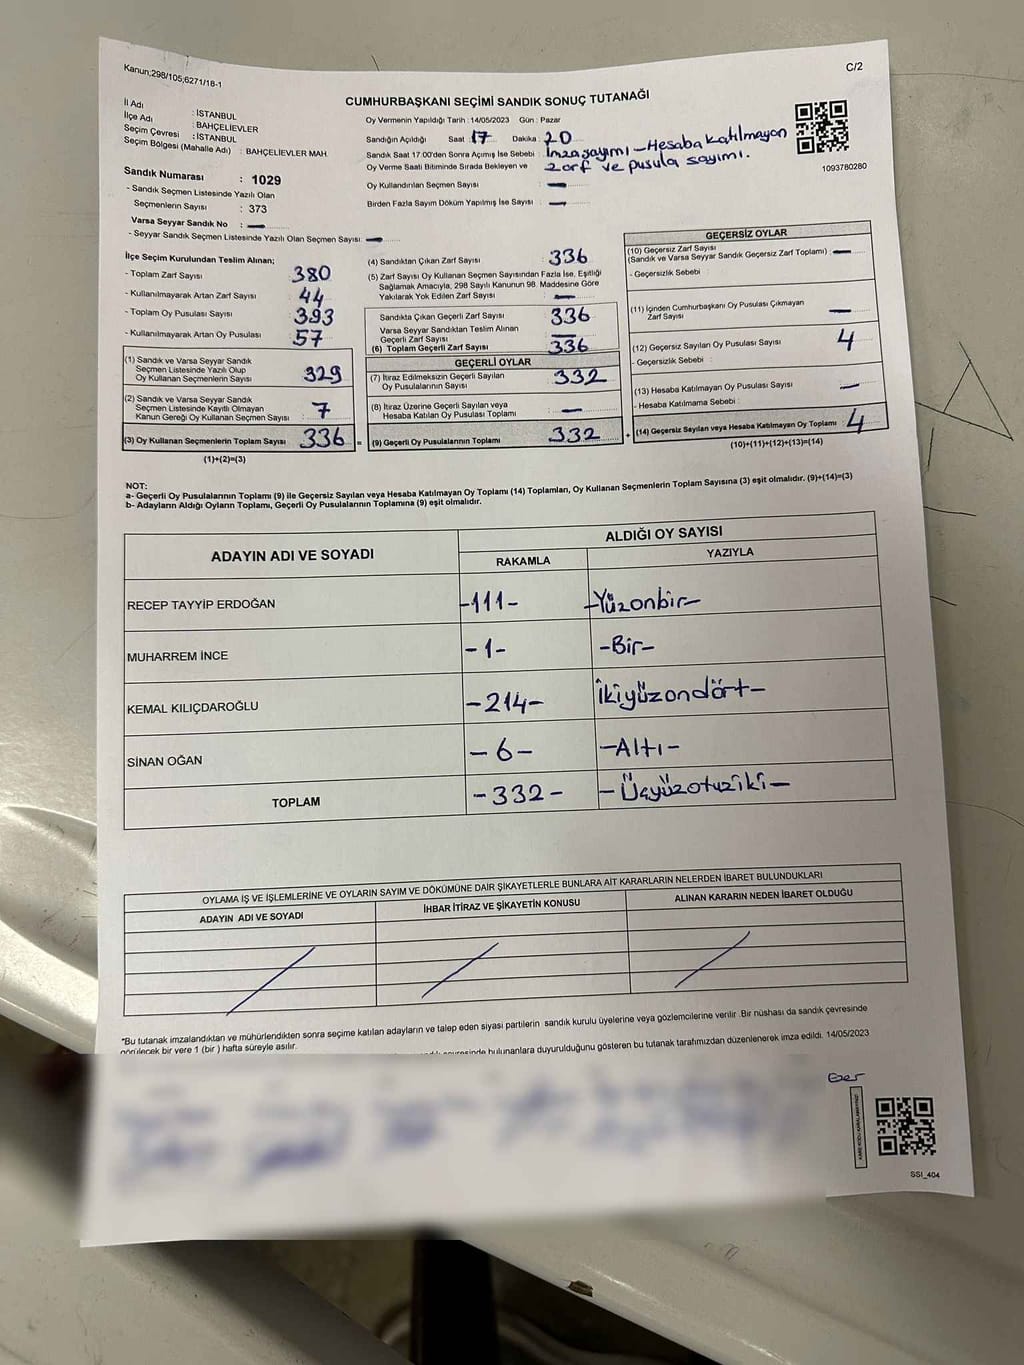 Kanun;298/105;6271/18-1
C/2
CUMHURBAŞKANI SEÇİMİ SANDIK SONUÇ TUTANAĞI
İl Adı : İSTANBUL
İlçe Adı : BAHÇELİEVLER
Seçim Çevresi : İSTANBUL
Seçim Bölgesi (Mahalle Adı) : BAHÇELİEVLER MAH.
Sandık Numarası : 1029
- Sandık Seçmen Listesinde Yazılı Olan
Seçmenlerin Sayısı : 373
Varsa Seyyar Sandık No : —
- Seyyar Sandık Seçmen Listesinde Yazılı Olan Seçmen Sayısı: —
Oy Vermenin Yapıldığı Tarih : 14/05/2023 Gün : Pazar
Sandığın Açıldığı Saat : 17 Dakika : 20
Sandık Saat 17.00'den Sonra Açılmış İse Sebebi : İmza sayımı – Hesaba katılmayan
Oy Verme Saati Bitiminde Sırada Bekleyen ve zarf ve pusula sayımı.
Oy Kullandırılan Seçmen Sayısı : —
Birden Fazla Sayım Döküm Yapılmış İse Sayısı : —
1093780280
İlçe Seçim Kurulundan Teslim Alınan;
- Toplam Zarf Sayısı : 380
- Kullanılmayarak Artan Zarf Sayısı : 44
- Toplam Oy Pusulası Sayısı : 393
- Kullanılmayarak Artan Oy Pusulası : 57
(1) Sandık ve Varsa Seyyar Sandık
Seçmen Listesinde Yazılı Olup
Oy Kullanan Seçmenlerin Sayısı : 329
(2) Sandık ve Varsa Seyyar Sandık
Seçmen Listesinde Kayıtlı Olmayan
Kanun Gereği Oy Kullanan Seçmen Sayısı : 7
(3) Oy Kullanan Seçmenlerin Toplam Sayısı : 336 =
(1)+(2)=(3)
(4) Sandıktan Çıkan Zarf Sayısı : 336
(5) Zarf Sayısı Oy Kullanan Seçmen Sayısından Fazla İse, Eşitliği
Sağlamak Amacıyla, 298 Sayılı Kanunun 98. Maddesine Göre
Yakılarak Yok Edilen Zarf Sayısı : —
Sandıkta Çıkan Geçerli Zarf Sayısı : 336
Varsa Seyyar Sandıktan Teslim Alınan
Geçerli Zarf Sayısı : —
(6) Toplam Geçerli Zarf Sayısı : 336
GEÇERLİ OYLAR
(7) İtiraz Edilmeksizin Geçerli Sayılan
Oy Pusulalarının Sayısı : 332
(8) İtiraz Üzerine Geçerli Sayılan veya
Hesaba Katılan Oy Pusulası Toplamı : —
(9) Geçerli Oy Pusulalarının Toplamı : 332 +
GEÇERSİZ OYLAR
(10) Geçersiz Zarf Sayısı
(Sandık ve Varsa Seyyar Sandık Geçersiz Zarf Toplamı) : —
- Geçersizlik Sebebi :
(11) İçinden Cumhurbaşkanı Oy Pusulası Çıkmayan
Zarf Sayısı : —
(12) Geçersiz Sayılan Oy Pusulası Sayısı : 4
- Geçersizlik Sebebi :
(13) Hesaba Katılmayan Oy Pusulası Sayısı : —
- Hesaba Katılmama Sebebi :
(14) Geçersiz Sayılan veya Hesaba Katılmayan Oy Toplamı : 4
(10)+(11)+(12)+(13)=(14)
NOT:
a- Geçerli Oy Pusulalarının Toplamı (9) ile Geçersiz Sayılan veya Hesaba Katılmayan Oy Toplamı (14) Toplamları, Oy Kullanan Seçmenlerin Toplam Sayısına (3) eşit olmalıdır. (9)+(14)=(3)
b- Adayların Aldığı Oyların Toplamı, Geçerli Oy Pusulalarının Toplamına (9) eşit olmalıdır.
ADAYIN ADI VE SOYADI
ALDIĞI OY SAYISI
RAKAMLA YAZIYLA
RECEP TAYYİP ERDOĞAN -111- -Yüzonbir-
MUHARREM İNCE -1- -Bir-
KEMAL KILIÇDAROĞLU -214- İkiyüzondört-
SİNAN OĞAN -6- -Altı-
TOPLAM -332- -Üçyüzotuziki-
OYLAMA İŞ VE İŞLEMLERİNE VE OYLARIN SAYIM VE DÖKÜMÜNE DAİR ŞİKAYETLERLE BUNLARA AİT KARARLARIN NELERDEN İBARET BULUNDUKLARI
ADAYIN ADI VE SOYADI İHBAR İTİRAZ VE ŞİKAYETİN KONUSU ALINAN KARARIN NEDEN İBARET OLDUĞU
*Bu tutanak imzalandıktan ve mühürlendikten sonra seçime katılan adayların ve talep eden siyasi partilerin sandık kurulu üyelerine veya gözlemcilerine verilir .Bir nüshası da sandık çevresinde
görülecek bir yere 1 (bir ) hafta süreyle asılır.
bulunanlara duyurulduğunu gösteren bu tutanak tarafımızdan düzenlenerek imza edildi. 14/05/2023
SSI_404